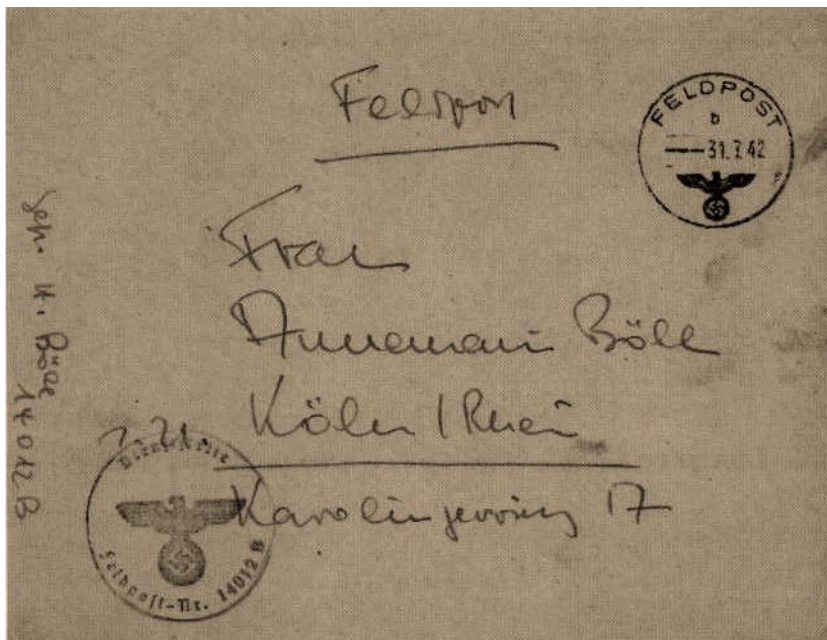 Feldpost
FELDPOST
b
31.7.42
Frau
Annemarie Böll
Köln / Rhein
Karolingerring 17
H. Böll
14012 B
Dienststelle
Feldpost-Nr. 14012 B